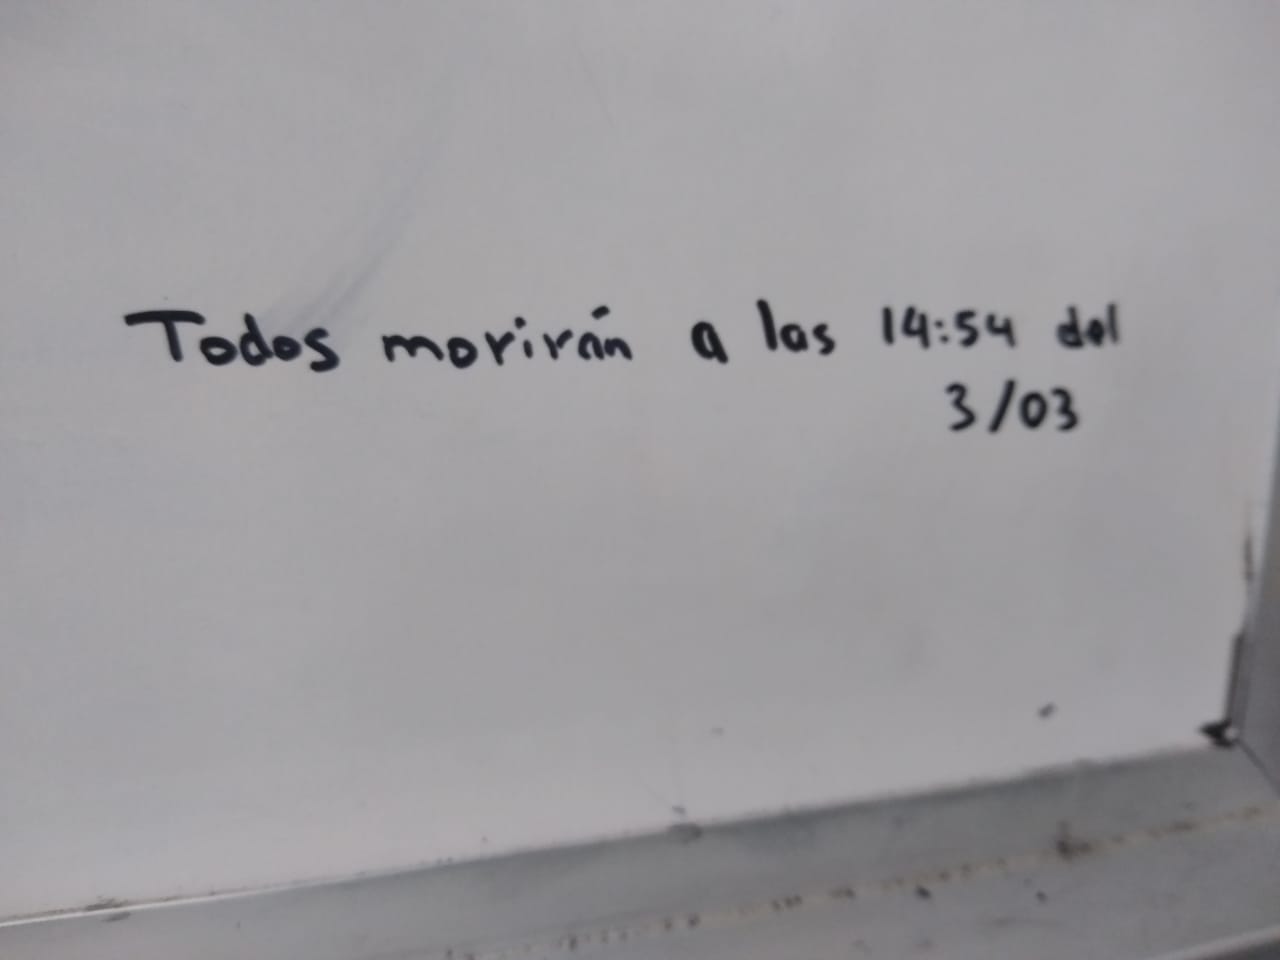 Todos morirán a las 14:54 del
3/03